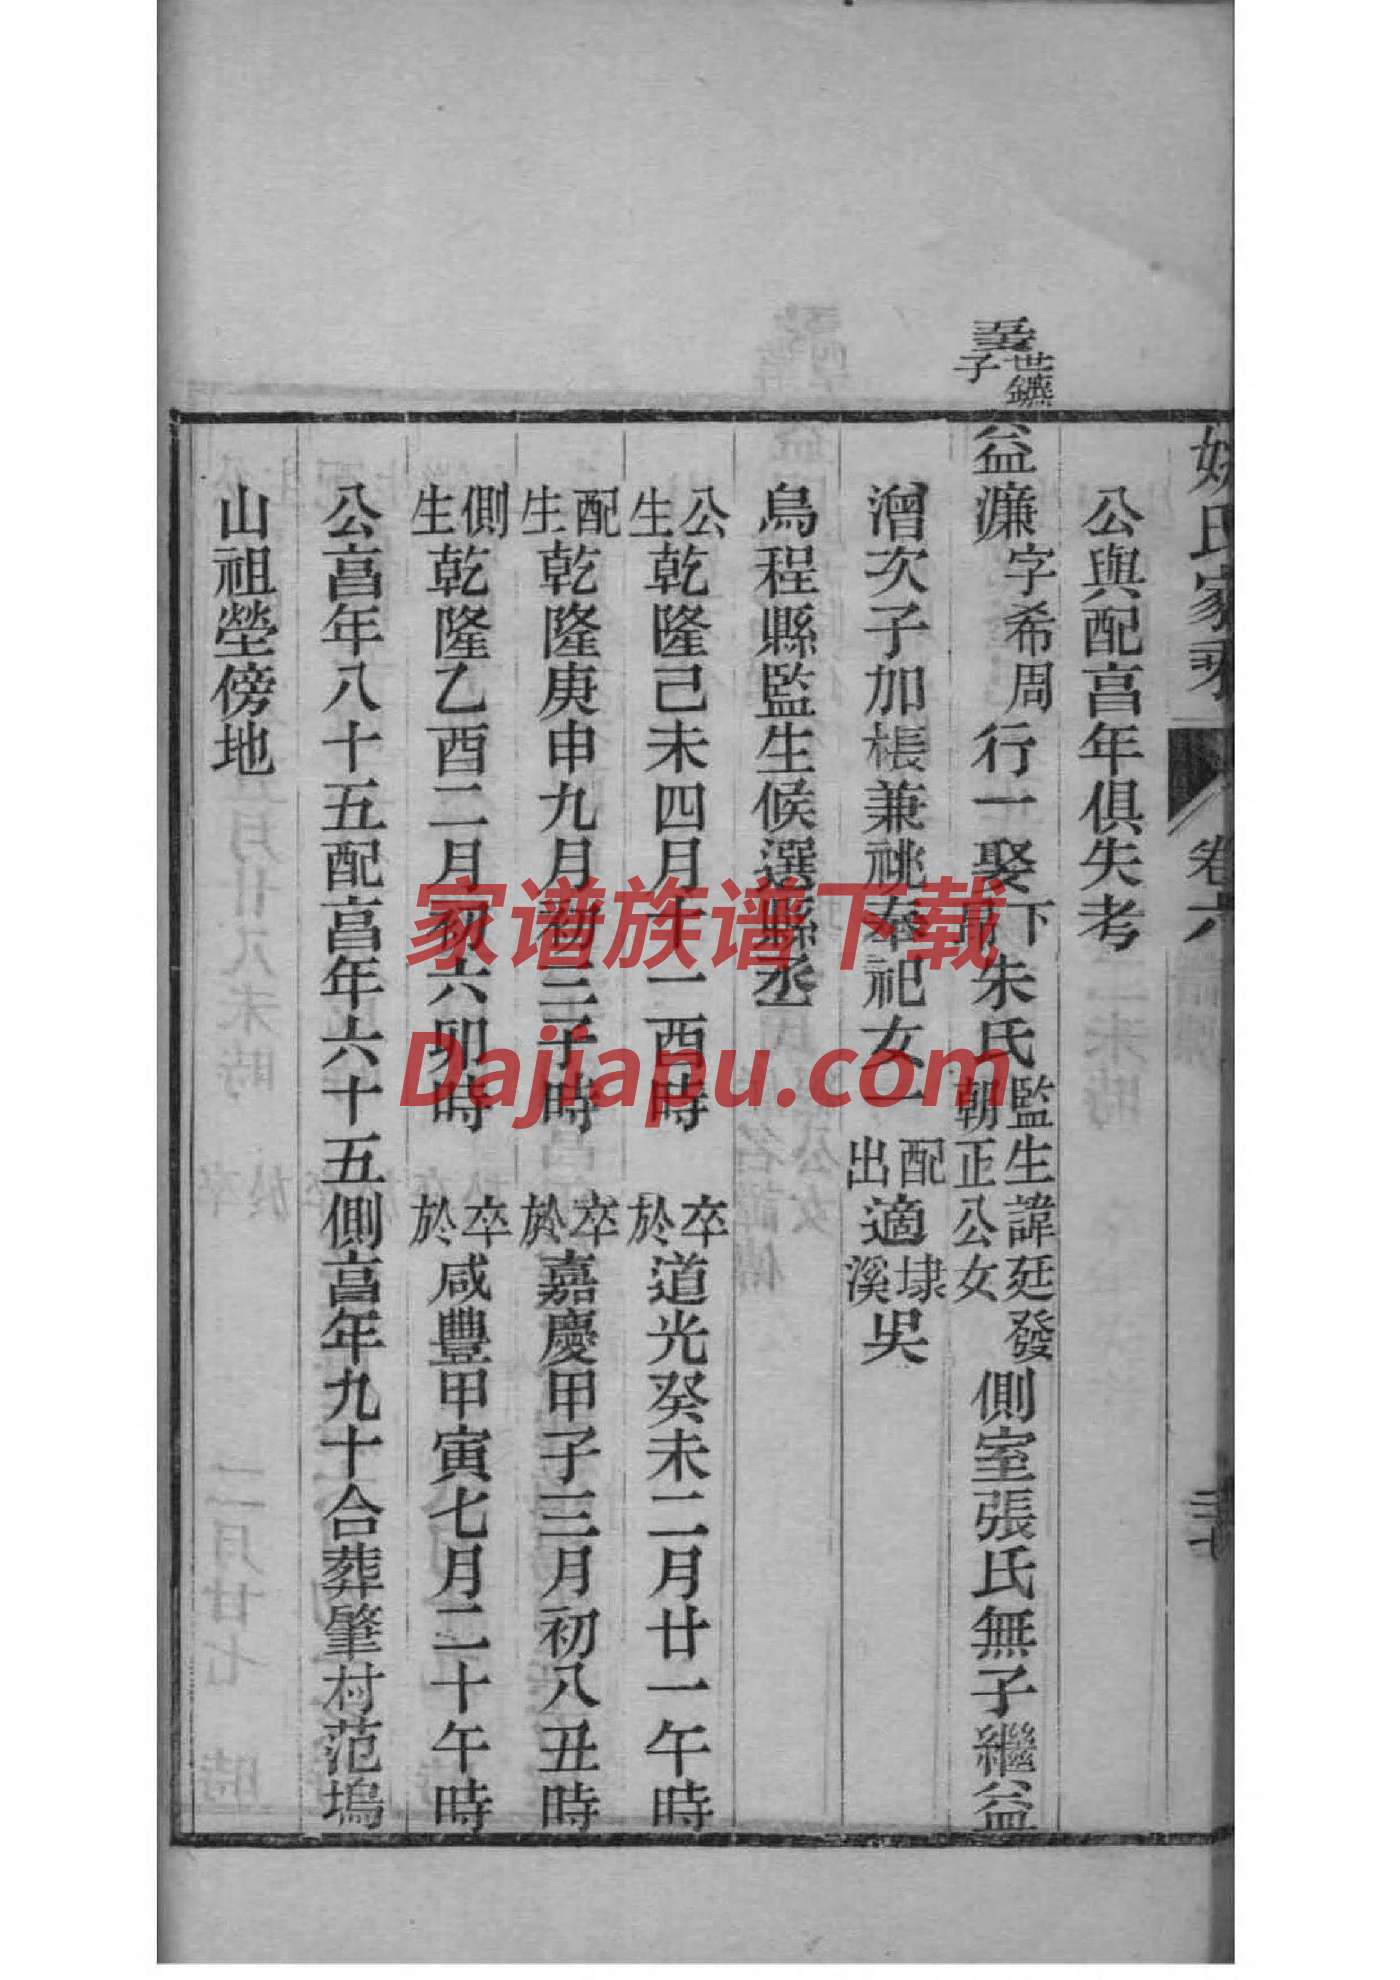 氏家乘
卷六
公與配亯年俱失考
世鑣
子
益濂字希周行一娶下朱氏監生諱廷發朝正公女側室張氏無子繼益
潧次子加棖兼祧奉祀女一配出適埭溪吳
烏程縣監生候選縣丞
公生乾隆己未四月十一酉時 卒於道光癸未二月廿一午時
配生乾隆庚申九月初三子時 卒於嘉慶甲子三月初八丑時
側生乾隆乙酉二月初六卯時 卒於咸豐甲寅七月二十午時
公亯年八十五配亯年六十五側亯年九十合葬肇村范塢
山祖塋傍地
家谱族谱下载
Dajiapu.com